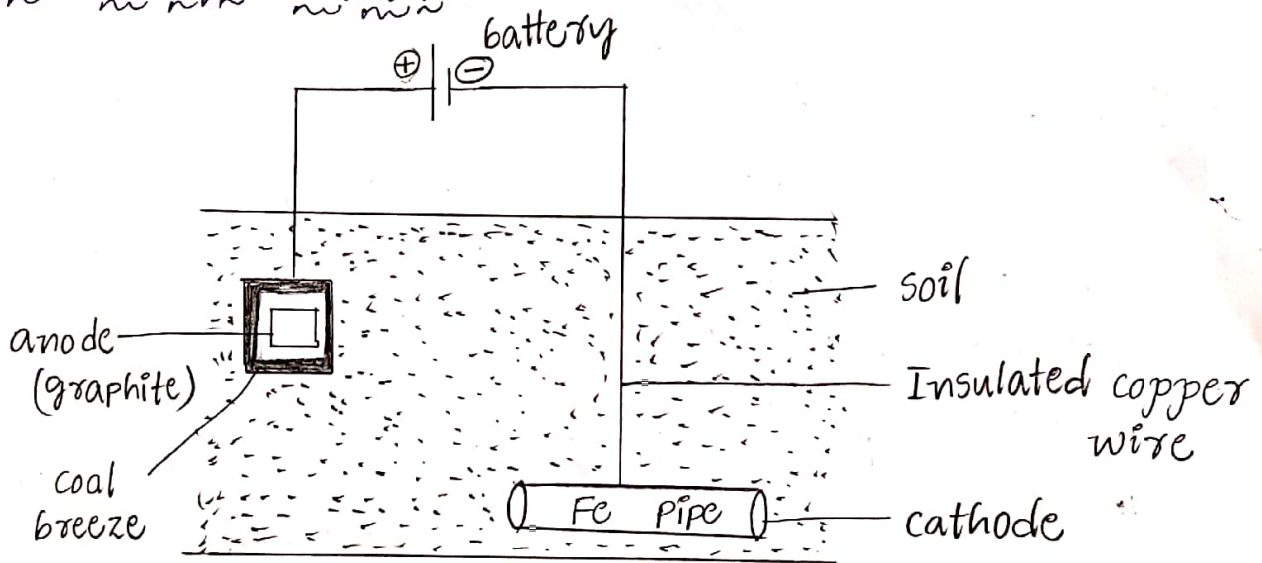 battery
⊕
⊖
soil
anode
(graphite)
Insulated copper
wire
coal
breeze
Fe pipe
cathode